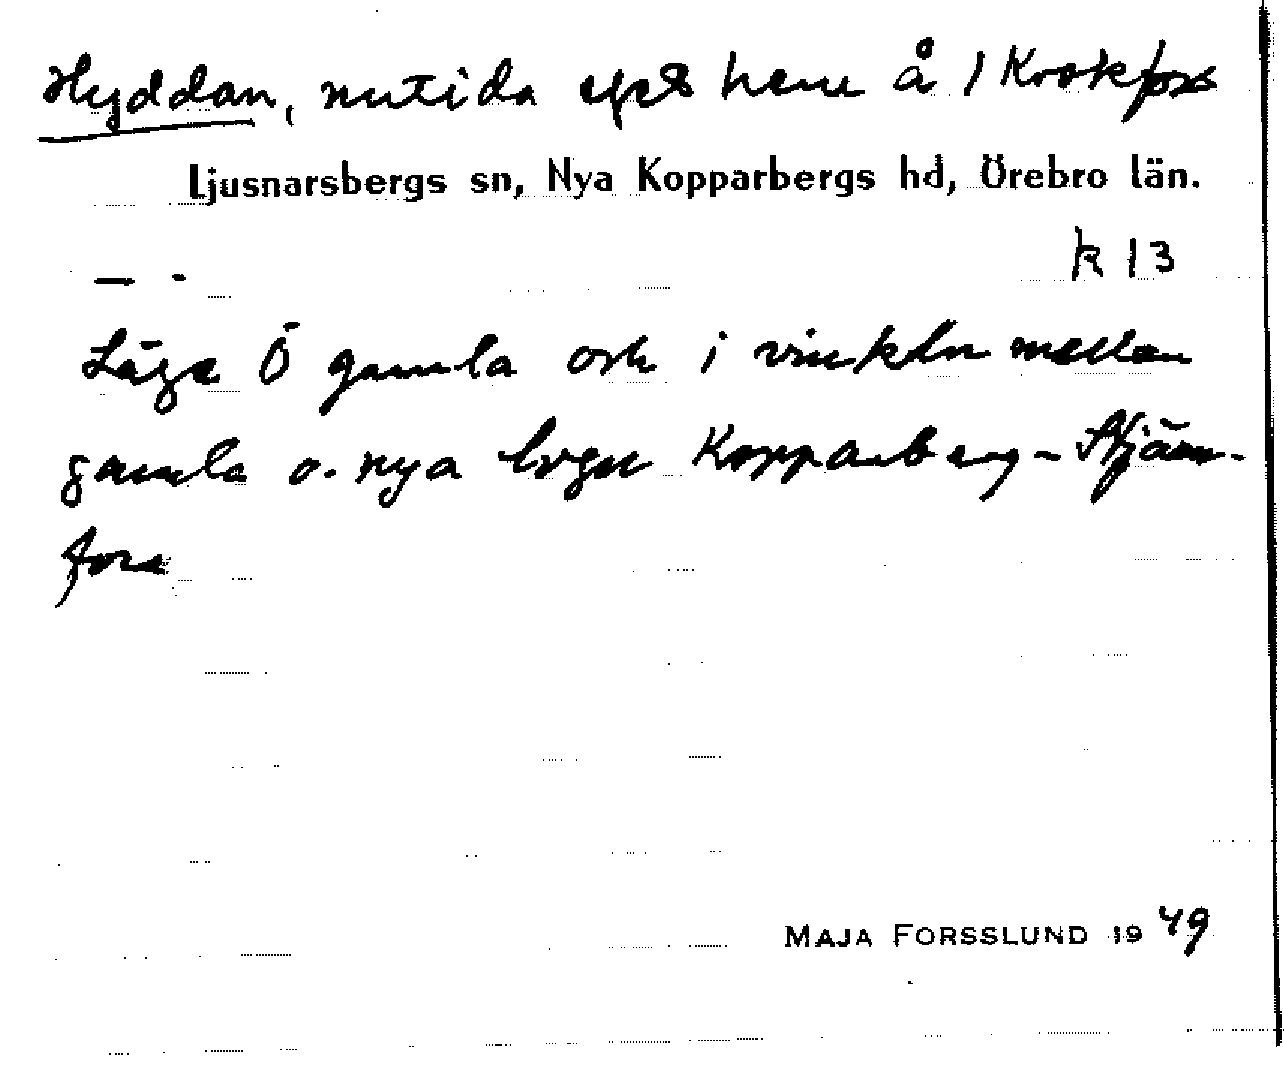 Hyddan, nutida hem å 1 Krokfors
Ljusnarsbergs sn, Nya Kopparbergs hd, Örebro län.
— -
k 13
Läge Ö gamla och i vinkeln mellan
gamla o. nya Kopparberg - Stjärn-
fors
MAJA FORSSLUND 19 49